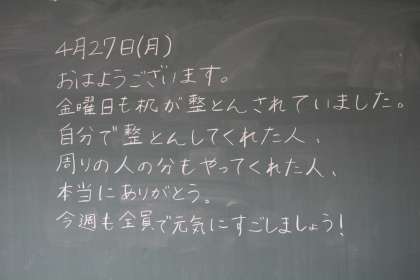 4月27日(月)
おはようございます。
金曜日も机が整とんされていました。
自分で整とんしてくれた人、
周りの人の分もやってくれた人、
本当にありがとう。
今週も全員で元気にすごしましょう!